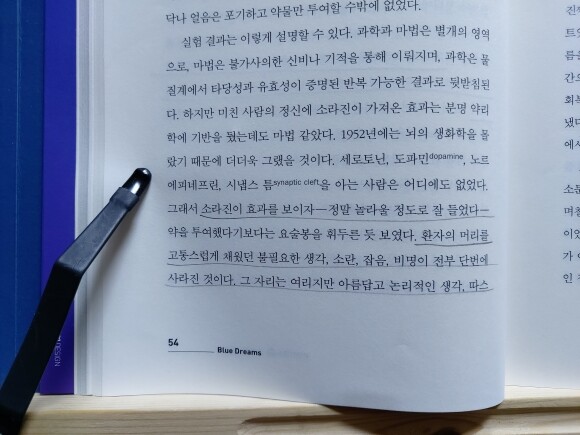 닥나 얼음은 포기하고 약물만 투여할 수밖에 없었다.
실험 결과는 이렇게 설명할 수 있다. 과학과 마법은 별개의 영역
으로, 마법은 불가사의한 신비나 기적을 통해 이뤄지며, 과학은 물
질계에서 타당성과 유효성이 증명된 반복 가능한 결과로 뒷받침된
다. 하지만 미친 사람의 정신에 소라진이 가져온 효과는 분명 약리
학에 기반을 뒀는데도 마법 같았다. 1952년에는 뇌의 생화학을 몰
랐기 때문에 더더욱 그랬을 것이다. 세로토닌, 도파민dopamine, 노르
에피네프린, 시냅스 틈synaptic cleft을 아는 사람은 어디에도 없었다.
그래서 소라진이 효과를 보이자—정말 놀라울 정도로 잘 들었다—
약을 투여했다기보다는 요술봉을 휘두른 듯 보였다. 환자의 머리를
고통스럽게 채웠던 불필요한 생각, 소란, 잡음, 비명이 전부 단번에
사라진 것이다. 그 자리는 여리지만 아름답고 논리적인 생각, 따스
54
Blue Dreams
DESIGN
진정
트웃
름을
간으
회복
냈다
에서
소문
며칠
이었
가 0
인 ㅊ